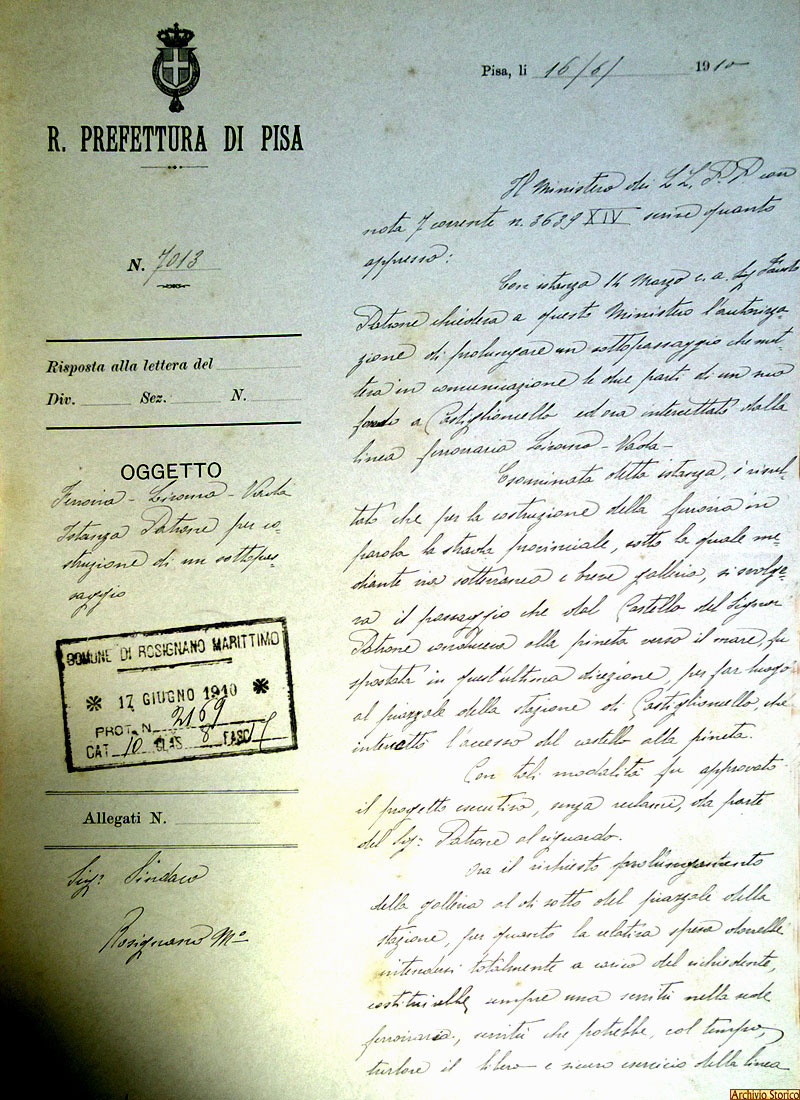 R. PREFETTURA DI PISA
Pisa, li 16/6/ 1910
N. 7013
Risposta alla lettera del
Div. Sez. N.
OGGETTO
Ferrovia - Livorno - Vada
Istanza Patrone per co-
struzione di un sottopas-
saggio
COMUNE DI ROSIGNANO MARITTIMO
17 GIUGNO 1910
PROT. N. 2169
CAT. 10 CLAS. 8 FASC.
Allegati N.
Sig.r Sindaco
Rosignano M.o
Il Ministero dei LL. P.P. con
nota 7 corrente n. 3639 XIV scrive quanto
appresso:
Con istanza 14 Marzo c. a. Sig Fausto
Patrone chiedeva a questo Ministero l'autorizza-
zione di prolungare un sottopassaggio che met-
teva in comunicazione le due parti di un suo
fondo a Castiglioncello ed ora intercettato dalla
linea ferroviaria Livorno - Vada -
Esaminata detta istanza, è risul-
tato che per la costruzione della ferrovia in
parola la strada provinciale, sotto la quale me-
diante via sotterranea e breve galleria, si svolge-
va il passaggio che dal Castello del Signor
Patrone conduceva alla pineta verso il mare, fu
spostata in quest'ultima direzione, per far luogo
al piazzale della stazione di Castiglioncello, che
intercettò l'accesso del castello alla pineta.
Con tali modalità fu approvato
il progetto esecutivo, senza reclami, da parte
del Sig: Patrone al riguardo.
Ora il richiesto prolungamento
della galleria al di sotto del piazzale della
stazione, per quanto la relativa spesa dovrebbe
intendersi totalmente a carico del richiedente,
costituirebbe sempre una servitù nella sede
ferroviaria, servitù che potrebbe, col tempo,
turbare il libero e sicuro esercizio della linea
Archivio Storico